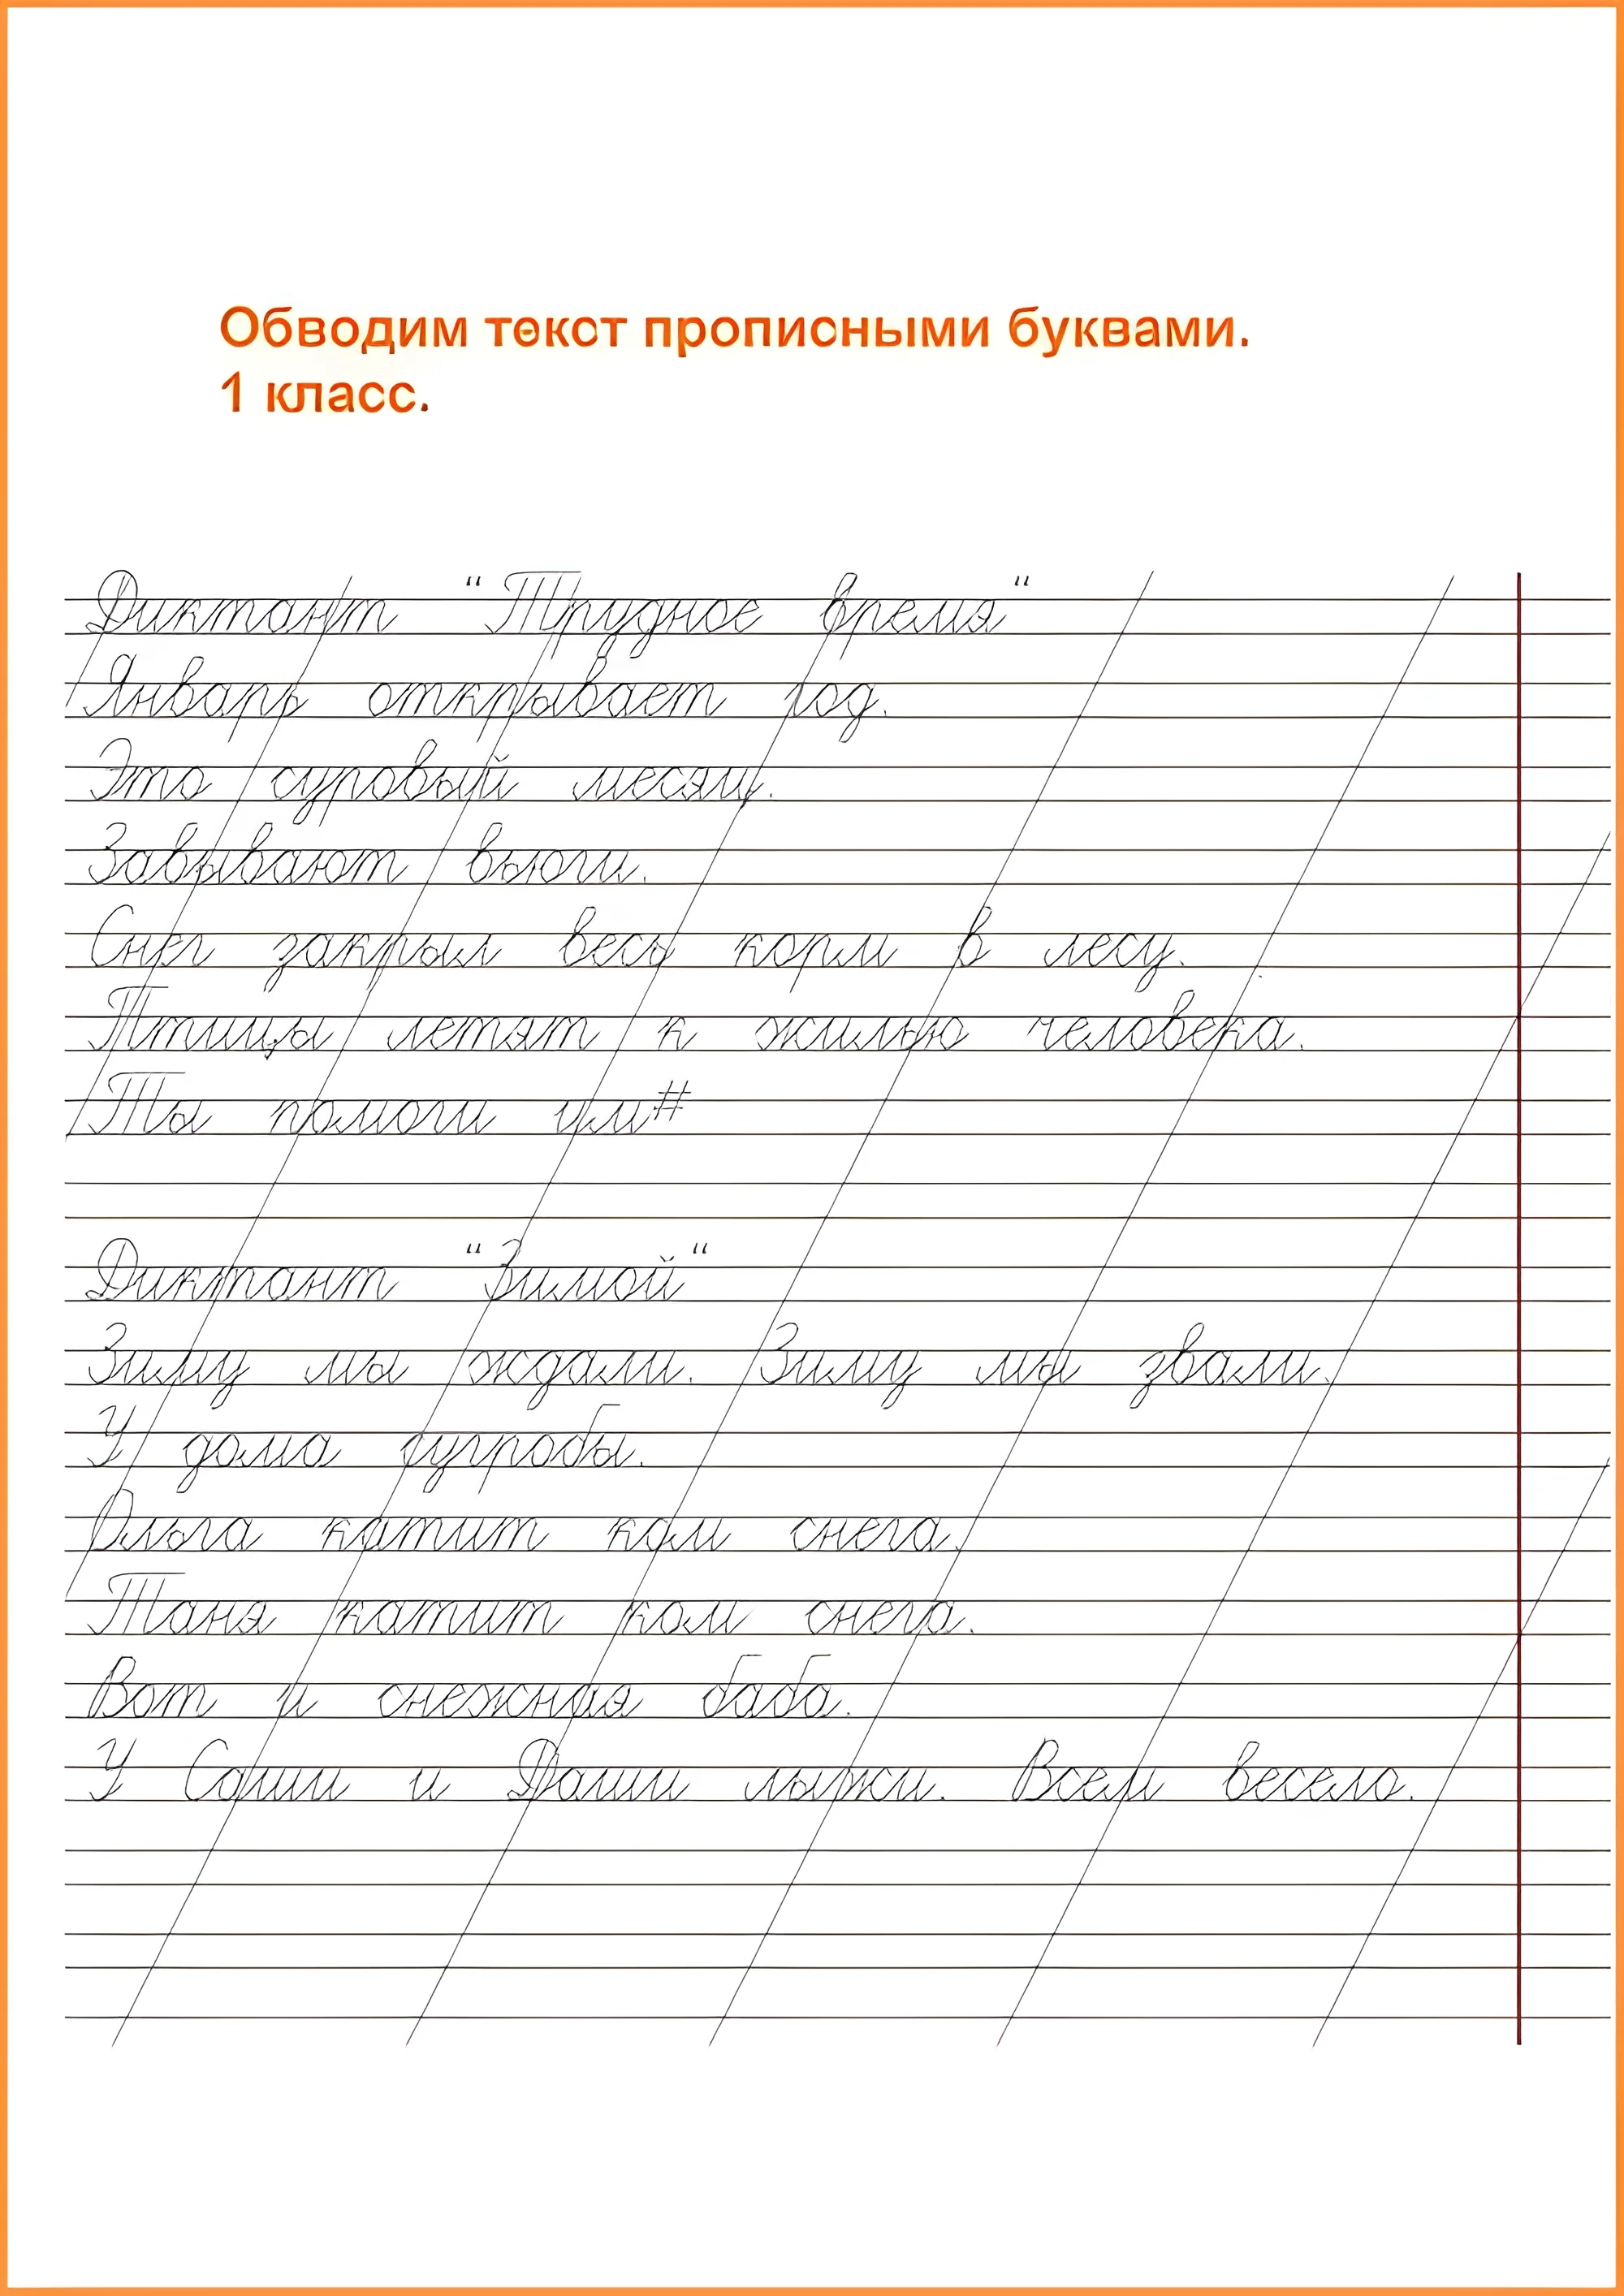 Обводим текст прописными буквами.
1 класс.
Диктант “Трудное время“
Январь открывает год.
Это суровый месяц.
Завывают вьюги.
Снег закрыл весь корм в лесу.
Птицы летят к жилью человека.
Ты помоги им#
Диктант “Зимой“
Зиму мы ждали. Зиму мы звали.
У дома сугробы.
Ольга катит ком снега.
Таня катит ком снега.
Вот и снежная баба.
У Саши и Даши лыжи. Всем весело.